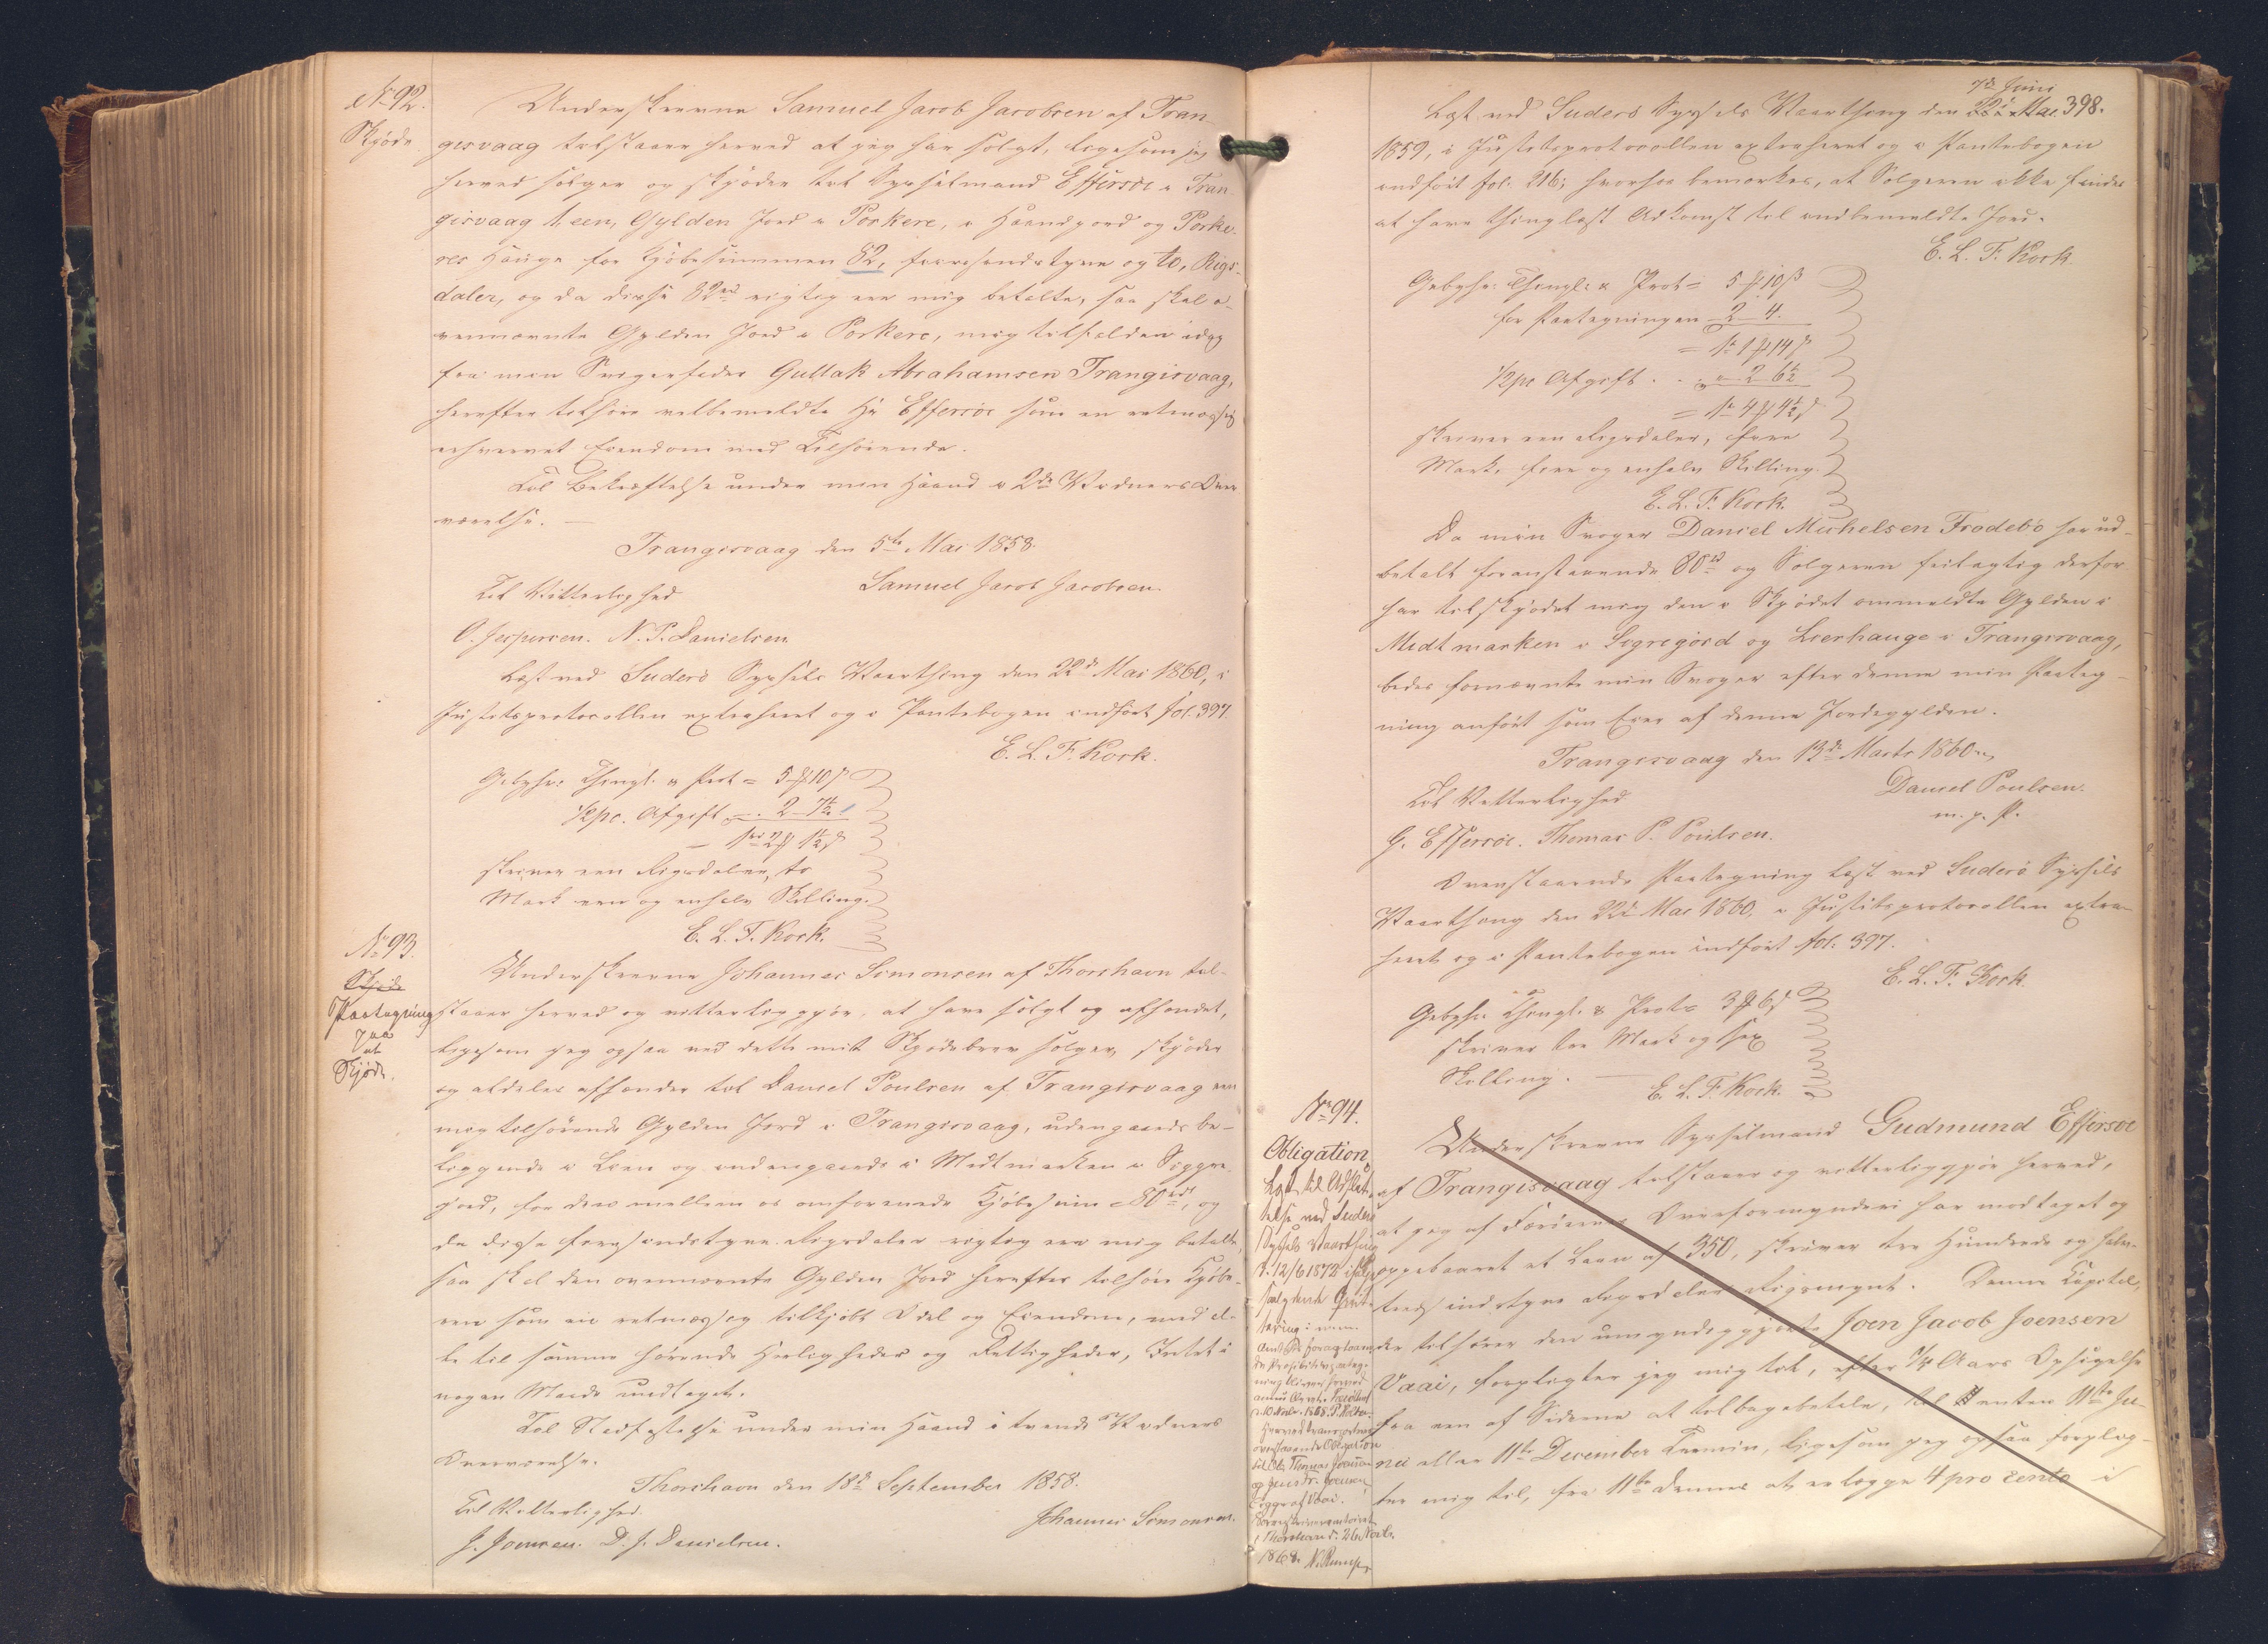 No 92.
Skjøde
Underskrevne Samuel Jacob Jacobsen af Tran-
gesvaag tilstaaer herved at jeg har solgt, ligesom jeg
herved sælger og skjøder til Sysselmand Effersøe i Tran-
gisvaag 1, een, Gylden Jord i Porkere, i Haandgord og Porke-
res Hauge for Kjøbesummen 82, fiirsindstyve og to, Rigs-
daler, og da disse 82 rd rigtig ere mig betalte, saa skal o-
vennævnte Gylden Jord i Porkere, mig tilfalden idag
fra min Svigerfader Gullak Abrahamsen Trangisvaag,
herefter tilhøre velbemeldte Hr Effersøe som en retmæssig
erhvervet Eiendom med Tilhørende.
Til Bekræftelse under min Haand i 2de Vidners Over-
værelse. —
Trangisvaag den 5te Mai 1858.
Til Vitterlighed Samuel Jacob Jacobsen.
O. Jespersen. N. P. Danielsen
Læst ved Suderø Syssels Vaarthing den 22de Mai 1860, i
Justitsprotocollen extraheret og i Pantebogen indført fol. 397.
E. L. F. Kock.
Gebyhr: Thingl. & Prot = 5 ₰ 10 β
1/2 pc. Afgift — . 2 - 7½
— 1 rd 2 ₰ 1½ β
skriver een Rigsdaler, to
Mark een og enhalv Skilling.
E. L. F. Kock.
No 93.
Skjøde
Paategning
paa
et
Skjøde.
Underskrevne Johannes Simonsen af Thorshavn til-
staaer herved og vitterliggjør, at have solgt og afhændet,
ligesom jeg ogsaa ved dette mit Skjødebrev sælger, skjøder
og aldeles afhænder til Daniel Poulsen af Trangisvaag een
mig tilhørende Gylden Jord i Trangisvaag, udengaards be-
liggende i Lien og indengaards i Midtmarken i Siggre-
gord, for den mellem os omforenede Kjøbesum 80 rd, og
da disse fiirsindstyve Rigsdaler rigtig ere mig betalte,
saa skal den ovennævnte Gylden Jord herefter tilhøre Kjøbe-
ren som en retmæssig tilkjøbt Odel og Eiendom, med al-
le til samme hørende Herligheder og Rettigheder, Intet i
nogen Maade undtaget.
Til Stadfæstelse under min Haand i tvende Vidners
Overværelse.
Thorshavn den 18de September 1858.
Til Vitterlighed Johannes Simonsen.
J. Joensen. D. J. Danielsen.
7de Juni
398.
Læst ved Suderø Syssels Vaarthing den 22de Mai
1859, i Justitsprotocollen extraheret og i Pantebogen
indført fol. 216; hvorhos bemærkes, at Sælgeren ikke findes
at have thinglæst Adkomst til indbemeldte Jord.
E. L. F. Kock
Gebyhr: Thingl: & Prot = 5 ₰ 10 β
for Paategningen 2 - 4.
= 1 rd 1 ₰ 14 β
1/2 pc Afgift . . 2 6½
= 1 rd 4 ₰ 4½ β
skriver een Rigsdaler, fire
Mark, fire og enhalv Skilling.
E. L. F. Kock.
Da min Svoger Daniel Michelsen Frodebø har ud-
betalt foranstaaende 80 rd og Sælgeren feilagtig derfor
har tilskjødet mig den i Skjødet ommeldte Gylden i
Midtmarken i Sigregord og Lierhauge i Trangisvaag,
bedes fornævnte min Svoger efter denne min Paateg-
ning anført som Eier af denne Jordegylden.
Trangisvaag den 13de Marts 1860
Til Vitterlighed Daniel Poulsen.
m. p. P.
G. Effersøe. Thomas P. Poulsen.
Ovenstaaende Paategning læst ved Suderø Syssels
Vaarthing den 22de Mai 1860, i Justitsprotocollen extra-
heret og i Pantebogen indført fol. 397.
E. L. F. Kock
Gebyhr Thingl. & Prot = 3 ₰ 6 β
skriver tre Mark og sex
Skilling. —
E. L. F. Kock.
No 94.
Obligation
Læst til Udslet-
telse ved Suderø
Syssels Vaarthing
d. 12/6 1872 ifølge
følgende Qvit-
tering:
Herved transporteres
ovenstaaende Obligation
til
Vaai.
Sorenskriverkontoiret
i Thorshavn d. 26 Novb.
1868.
Underskrevne Sysselmand Gudmund Effersøe
af Trangisvaag tilstaaer og vitterliggjør herved,
at jeg af Færøernes Overformynderi har modtaget og
oppebaaret et Laan af 350, skriver tre Hundrede og halv-
tredsindstyve Rigsdaler Rigsmynt. Denne Capital,
der tilhører den umyndiggjorte Joen Jacob Joensen
Vaai, forpligter jeg mig til, efter 1/4 Aars Opsigelse
fra een af Siderne at tilbagebetale, til enten 11te Ju-
nii eller 11te December Termin, ligesom jeg ogsaa forplig-
ter mig til, fra 11te dennes at erlægge 4 pro cento i